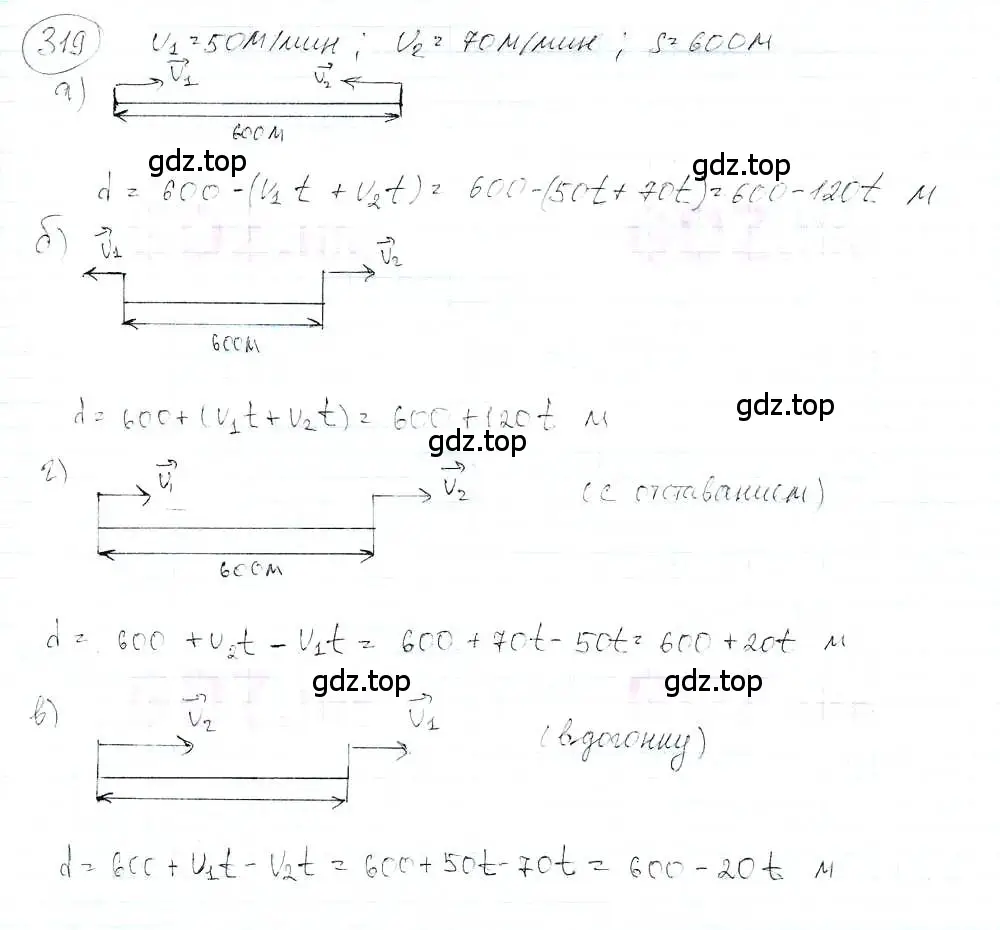 319 v₁=50м/мин ; v₂=70м/мин ; s=600м
а) v₁ v₂
600м
gdz.top gdz.top
d = 600-(v₁t + v₂t)= 600-(50t+70t)=600-120t м
б) v₁ v₂
600м
gdz.top
d=600+(v₁t+v₂t)= 600+120t м
gdz.top
г) v₁ v₂ (с отставанием)
600м
d = 600 +v₂t - v₁t = 600 +70t-50t=600+20t м
gdz.top gdz.top
в) v₂ v₁ (вдогонку)
d=600+v₁t-v₂t = 600+50t-70t = 600-20t м